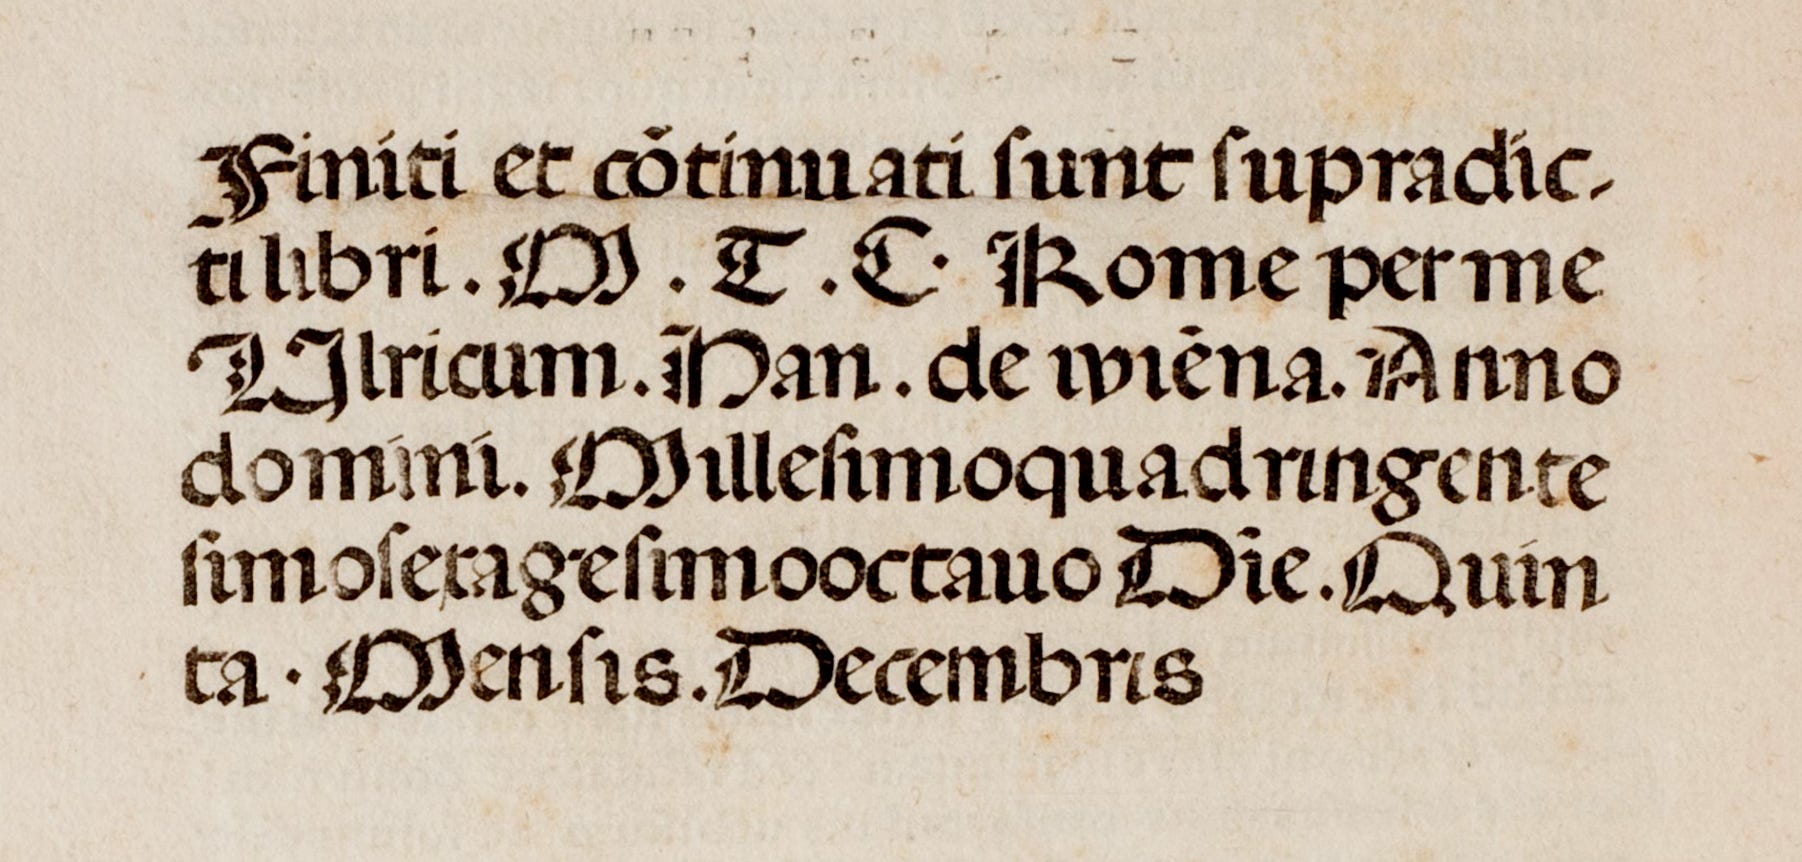 Finiti et cõtinuati ſunt ſupradic-
ti libri. M . T . C. Rome per me
Ulricum. Han. de wiēna. Anno
domini. Milleſimoquadringente
ſimoſexageſimooctauo Die. Quin
ta. Menſis. Decembris